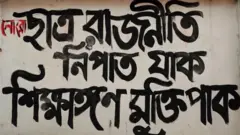 ছাত্র রাজনীতি
নিপাত যাক
শিক্ষাঙ্গণ মুক্তি পাক